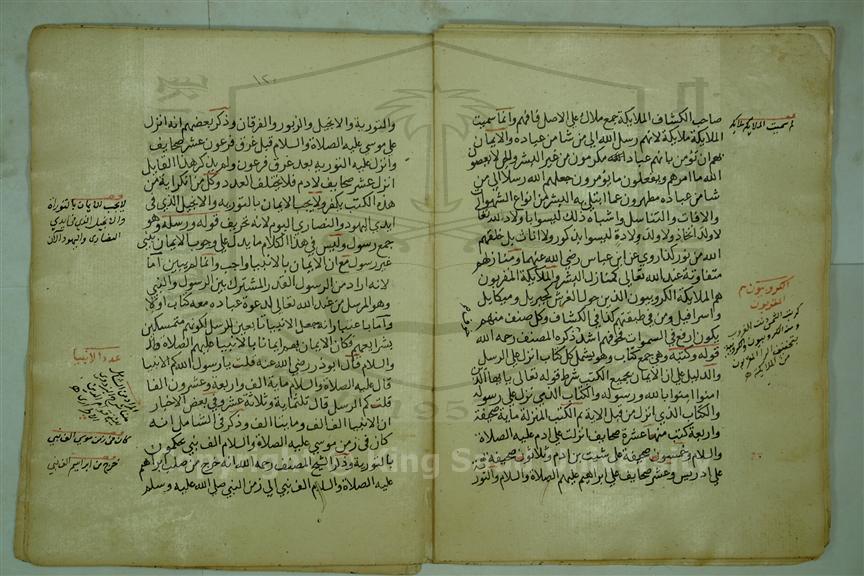 صاحب الكشاف الملايكة جمع ملاك على الاصل فافهم وانما سميت
الملايكة ملايكة لانهم رسل الله الى من شا من عباده والايمان
بهم ان نؤمن بانهم عباد الله مكرمون من غير البشر والجن لا يعصون
الله ما امرهم ويفعلون ما يؤمرون جعلهم الله رسلا الى من
شا من عباده مطهرون عما ابتلى به البشر من انواع الشهوات
والافات والتناسل واشباه ذلك ليسوا باولاد لله تعالى
لا ولد اتخاذ ولا ولد ولادة ليسوا بذكور ولا اناث بل خلقهم
الله من نور كذا روي عن ابن عباس رضي الله عنهما ومنازلهم
متفاوتة عند الله تعالى كمنازل البشر والملايكة المقربون
هم الملايكة الكروبيون الذين حول العرش كجبريل وميكايل
واسرافيل ومن في طبقتهم كذا في الكشاف وكل صنف منهم
يكون ارفع في السموات فخوفهم اشد ذكره المصنف رحمه الله
قوله وكتبه وهي جمع كتاب وهو يشمل كل كتاب انزل على الرسل
والدليل على ان الايمان بجميع الكتب شرط قوله تعالى يا ايها الذين
امنوا امنوا بالله ورسوله والكتاب الذي نزل على رسوله
والكتاب الذي انزل من قبل الاية ثم الكتب المنزلة ماية صحيفة
واربعة كتب منها عشرة صحايف انزلت على ادم عليه الصلاة
والسلام وخمسون صحيفة على شيث بن ادم وثلاثون صحيفة
على ادريس وعشر صحايف على ابراهيم عليهم الصلاة والسلام والتور
لم سميت الملايكة ملايكة
الكروبيون هم
المقربون
من الملايكة
١٢٠
والتورية والانجيل والزبور والفرقان وذكر بعضهم انه انزل
على موسى عليه الصلاة والسلام قبل غرق فرعون عشر صحايف
وانزل عليه التورية بعد غرق فرعون ولم يذكر هذا القايل
انزل عشر صحايف لادم فلا يختلف العدد وكل من انكر اية من
هذه الكتب يكفر ولا يجب الايمان بالتورية والانجيل الذي في
ايدي اليهود والنصارى اليوم لانه تحريف قوله ورسله وهو
جمع رسول وليس في هذا الكلام ما يدل على وجوب الايمان بنبي
غير رسول مع ان الايمان بالانبيا واجب
لانه اراد من الرسول القدر المشترك بين الرسول والنبي
وهو المرسل من عند الله تعالى لدعوة عباده معه كتاب اولا
واما باعتبار انه جعل الانبيا تابعين الرسل لكونهم متمسكين
بشرايعهم فكان الايمان بهم ايمانا بالانبيا عليهم الصلاة
والسلام وقال ابو ذر رضي الله عنه قلت يا رسول الله كم الانبيا
قال عليه الصلاة والسلام ماية الف واربعة وعشرون الفا
قلت كم الرسل قال ثلثماية وثلاثة عشر وفي بعض الاخبار
ان الانبيا الف الف ومايتا الف وذكر في الشامل انه
كان في زمن موسى عليه الصلاة والسلام الف نبي يحكمون
بالتورية وذكر الشيخ المصنف رحمه الله انه خرج من صلب ابراهيم
عليه الصلاة والسلام الف نبي الى زمن النبي صلى الله عليه وسلم
لا يجب الايمان بالتوراة
والانجيل الذي في ايدي
النصارى واليهود الآن
عدد الانبيا
كان في زمن موسى الف نبي
خرج من ابراهيم الف نبي